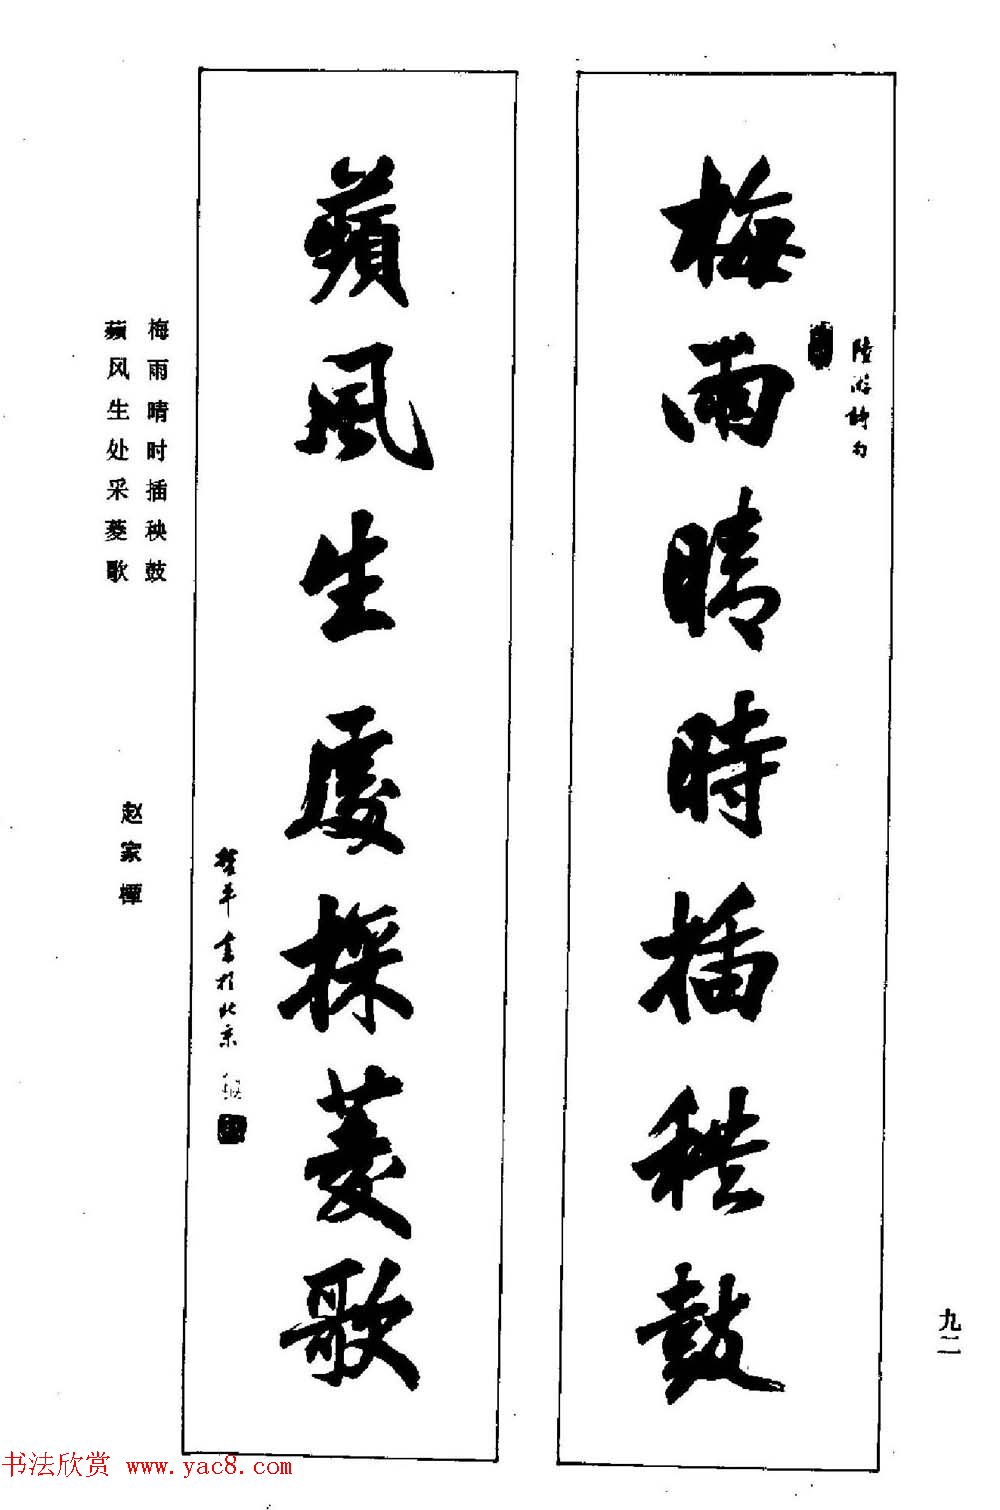 梅雨晴時插秧鼓
陸游詩句
蘋風生處採菱歌
書於北京
梅雨晴时插秧鼓
蘋风生处采菱歌
赵家
九二
书法欣赏 www.yac8.com